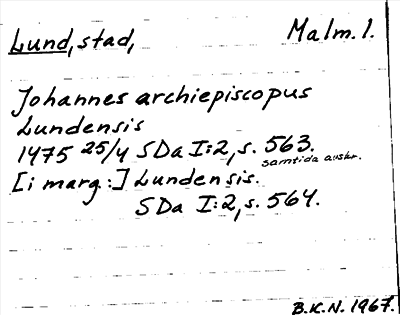 Lund, stad, Malm. l.
Johannes archiepiscopus
Lundensis
1475 25/4 SDa I:2, s. 563.
samtida avskr.
[i marg:] Lundensis.
SDa I:2, s. 564.
B.K.N. 1967.